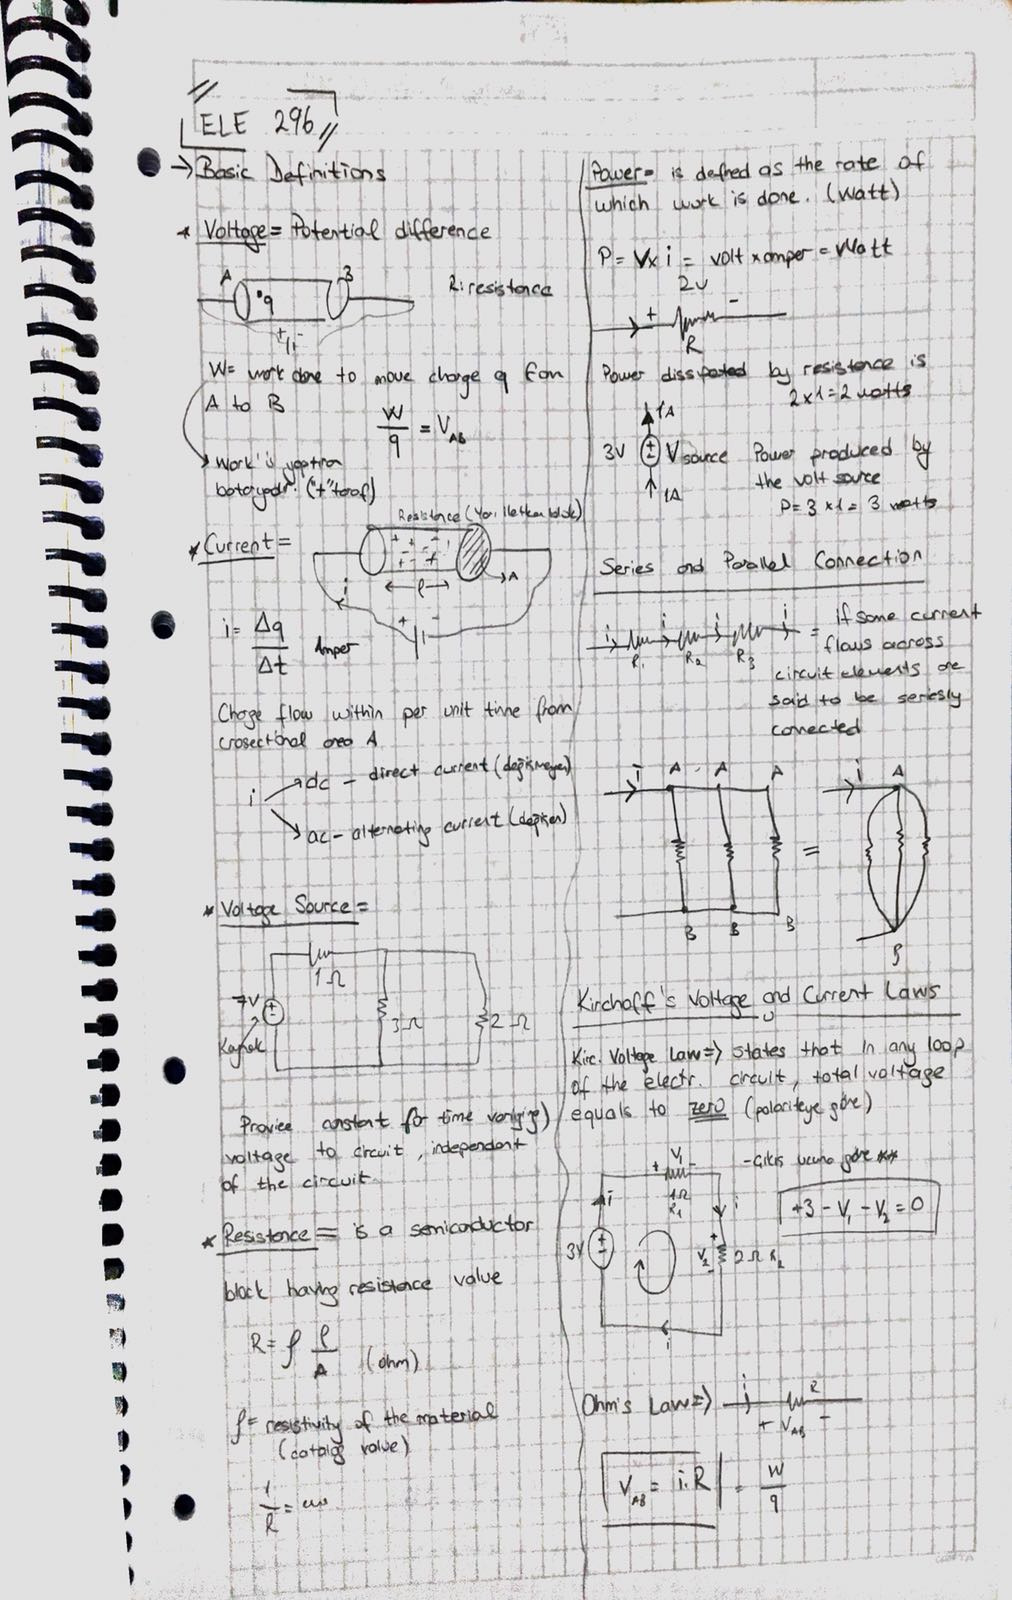 ELE 296
→ Basic Definitions
* Voltage = Potential difference
A B
q
R: resistence
+ -
W= work done to move charge q from
A to B
W/q = V_AB
Work'ü yaptıran
bataryadır. ("+" taraf)
* Current =
Resistence (Yarı iletken blok)
+ + -
- - +
l
A
i
+ -
i = Δq/Δt Amper
Charge flow within per unit time from
crosectional area A
i
dc - direct current (değişmeyen)
ac - alternating current (değişen)
* Voltage Source =
1Ω
7V
3Ω
2Ω
Kaynak
Proviee constant (for time varying)
voltage to circuit, independent
of the circuit.
* Resistence = is a semiconductor
block having resistence value
R = ρ l/A (ohm)
ρ = resistivity of the material
(catalog value)
1/R =
Power = is defined as the rate of
which work is done. (Watt)
P = V x i = volt x amper = Watt
2V
+ -
R
Power dissipated by resistence is
2 x 1 = 2 watts
1A
3V V source Power produced by
1A the volt source
P = 3 x 1 = 3 watts
Series and Parallel Connection
i i i i
R1 R2 R3
= if same current
flows across
circuit elements are
said to be seriesly
connected
i A A A
i A
=
B B B
B
Kirchoff's Voltage and Current Laws
Kirc. Voltage Law => states that in any loop
of the electr. circuit, total voltage
equals to zero (polariteye göre)
+ V1 -
1Ω
R1
- Çıkış ucuna göre **
i
i
+3 - V1 - V2 = 0
3V
+
V2
-
2Ω R2
i
Ohm's Law =>
i R
+ V_AB -
V_AB = i.R = W/q